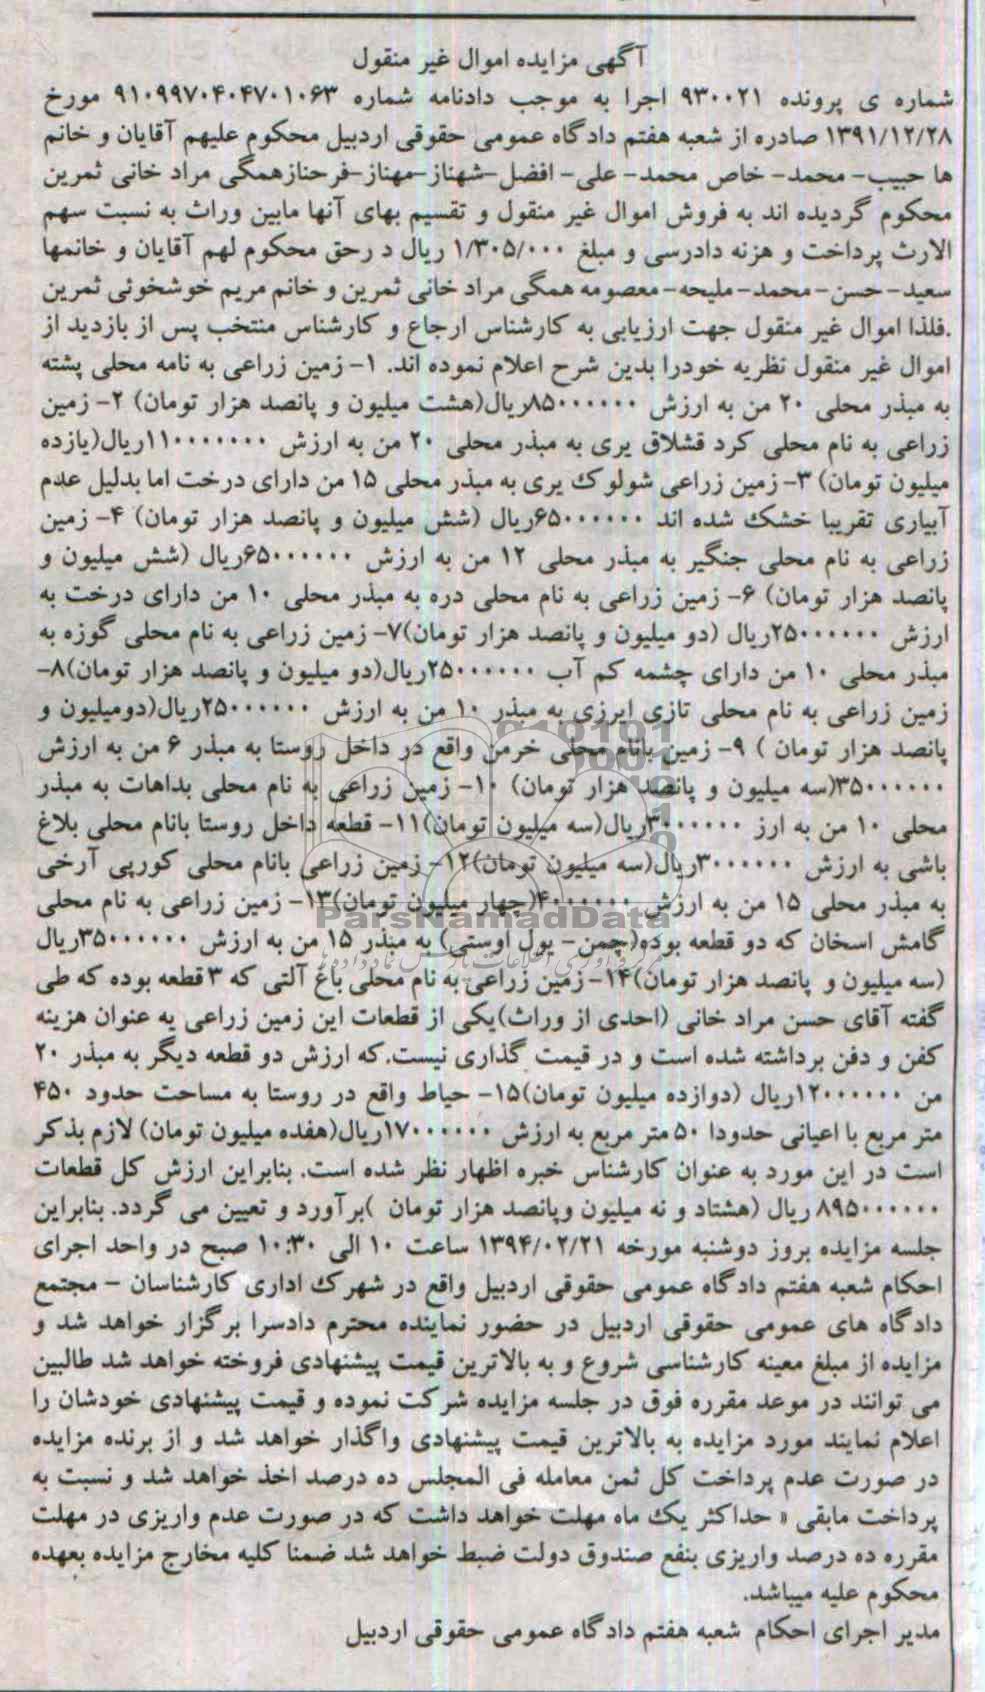 آگهی مزایده اموال غیر منقول
شماره ی پرونده ۹۳۰۰۲۱ اجرا به موجب دادنامه شماره ۹۱۰۹۹۷۰۴۰۴۷۰۱۰۶۳ مورخ
۱۳۹۱/۱۲/۲۸ صادره از شعبه هفتم دادگاه عمومی حقوقی اردبیل محکوم علیهم آقایان و خانم
ها حبیب- محمد- خاص محمد- علی- افضل-شهناز-مهناز-فرحنازهمگی مراد خانی ثمرین
محکوم گردیده اند به فروش اموال غیر منقول و تقسیم بهای آنها مابین وراث به نسبت سهم
الارث پرداخت و هزنه دادرسی و مبلغ ۱/۳۰۵/۰۰۰ ریال د رحق محکوم لهم آقایان و خانمها
سعید-حسن-محمد-ملیحه-معصومه همگی مراد خانی ثمرین و خانم مریم خوشخوئی ثمرین
.فلذا اموال غیر منقول جهت ارزیابی به کارشناس ارجاع و کارشناس منتخب پس از بازدید از
اموال غیر منقول نظریه خودرا بدین شرح اعلام نموده اند. ۱- زمین زراعی به نامه محلی پشته
به مبذر محلی ۲۰ من به ارزش ۸۵۰۰۰۰۰۰ریال(هشت میلیون و پانصد هزار تومان) ۲- زمین
زراعی به نام محلی کرد قشلاق یری به مبذر محلی ۲۰ من به ارزش ۱۱۰۰۰۰۰۰۰ریال(یازده
میلیون تومان) ۳- زمین زراعی شولوک یری به مبذر محلی ۱۵ من دارای درخت اما بدلیل عدم
آبیاری تقریبا خشک شده اند ۶۵۰۰۰۰۰۰ریال (شش میلیون و پانصد هزار تومان) ۴- زمین
زراعی به نام محلی جنگیر به مبذر محلی ۱۲ من به ارزش ۶۵۰۰۰۰۰۰ریال (شش میلیون و
پانصد هزار تومان) ۶- زمین زراعی به نام محلی دره به مبذر محلی ۱۰ من دارای درخت به
ارزش ۲۵۰۰۰۰۰۰ریال (دو میلیون و پانصد هزار تومان)۷- زمین زراعی به نام محلی گوزه به
مبذر محلی ۱۰ من دارای چشمه کم آب ۲۵۰۰۰۰۰۰ریال(دو میلیون و پانصد هزار تومان)۸-
زمین زراعی به نام محلی تازی ایرزی به مبذر ۱۰ من به ارزش ۲۵۰۰۰۰۰۰ریال(دومیلیون و
پانصد هزار تومان ) ۹- زمین بانام محلی خرمن واقع در داخل روستا به مبذر ۶ من به ارزش
۳۵۰۰۰۰۰۰(سه میلیون و پانصد هزار تومان) ۱۰- زمین زراعی به نام محلی بداهات به مبذر
محلی ۱۰ من به ارز ۳۰۰۰۰۰۰ریال(سه میلیون تومان)۱۱- قطعه داخل روستا بانام محلی بلاغ
باشی به ارزش ۳۰۰۰۰۰۰ریال(سه میلیون تومان)۱۲- زمین زراعی بانام محلی کورپی آرخی
به مبذر محلی ۱۵ من به ارزش ۴۰۰۰۰۰۰(چهار میلیون تومان)۱۳- زمین زراعی به نام محلی
گامش اسخان که دو قطعه بوده(چمن- یول اوستی) به مبذر ۱۵ من به ارزش ۳۵۰۰۰۰۰۰ریال
(سه میلیون و پانصد هزار تومان)۱۴- زمین زراعی به نام محلی باغ آلتی که ۳ قطعه بوده که طی
گفته آقای حسن مراد خانی (احدی از وراث)یکی از قطعات این زمین زراعی یه عنوان هزینه
کفن و دفن برداشته شده است و در قیمت گذاری نیست.که ارزش دو قطعه دیگر به مبذر ۲۰
من ۱۲۰۰۰۰۰۰ریال (دوازده میلیون تومان)۱۵- حیاط واقع در روستا به مساحت حدود ۴۵۰
متر مربع با اعیانی حدودا ۵۰ متر مربع به ارزش ۱۷۰۰۰۰۰۰ریال(هفده میلیون تومان) لازم بذکر
است در این مورد به عنوان کارشناس خبره اظهار نظر شده است. بنابراین ارزش کل قطعات
۸۹۵۰۰۰۰۰۰ ریال (هشتاد و نه میلیون وپانصد هزار تومان )برآورد و تعیین می گردد. بنابراین
جلسه مزایده بروز دوشنبه مورخه ۱۳۹۴/۰۲/۲۱ ساعت ۱۰ الی ۱۰:۳۰ صبح در واحد اجرای
احکام شعبه هفتم دادگاه عمومی حقوقی اردبیل واقع در شهرک اداری کارشناسان - مجتمع
دادگاه های عمومی حقوقی اردبیل در حضور نماینده محترم دادسرا برگزار خواهد شد و
مزایده از مبلغ معینه کارشناسی شروع و به بالاترین قیمت پیشنهادی فروخته خواهد شد طالبین
می توانند در موعد مقرره فوق در جلسه مزایده شرکت نموده و قیمت پیشنهادی خودشان را
اعلام نمایند مورد مزایده به بالاترین قیمت پیشنهادی واگذار خواهد شد و از برنده مزایده
در صورت عدم پرداخت کل ثمن معامله فی المجلس ده درصد اخذ خواهد شد و نسبت به
پرداخت مابقی ؛ حداکثر یک ماه مهلت خواهد داشت که در صورت عدم واریزی در مهلت
مقرره ده درصد واریزی بنفع صندوق دولت ضبط خواهد شد ضمنا کلیه مخارج مزایده بعهده
محکوم علیه میباشد.
مدیر اجرای احکام شعبه هفتم دادگاه عمومی حقوقی اردبیل
ParsNamadData